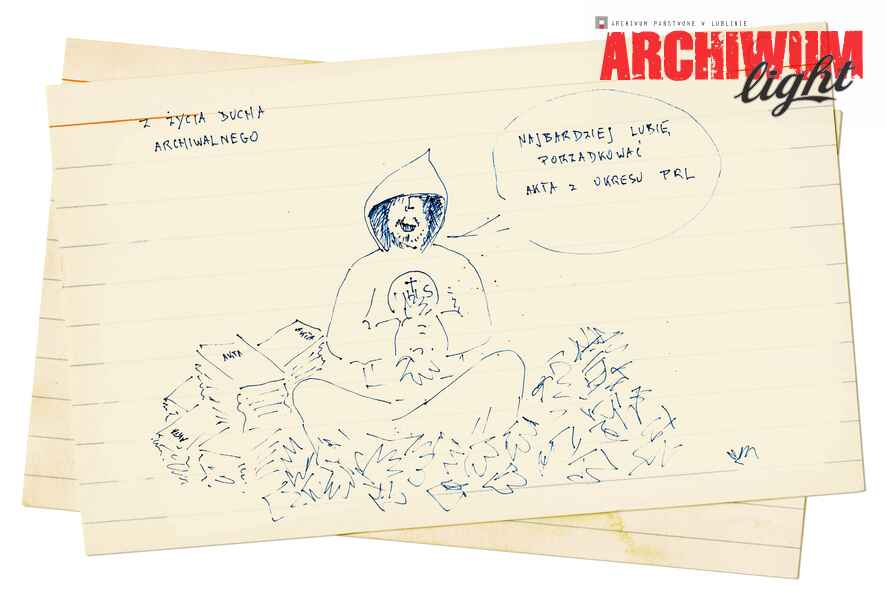 ARCHIWUM PAŃSTWOWE W LUBLINIE
ARCHIWUM
light
Z ŻYCIA DUCHA
ARCHIWALNEGO
NAJBARDZIEJ LUBIĘ
PORZĄDKOWAĆ
AKTA Z OKRESU PRL
IHS
AKTA
AKTA